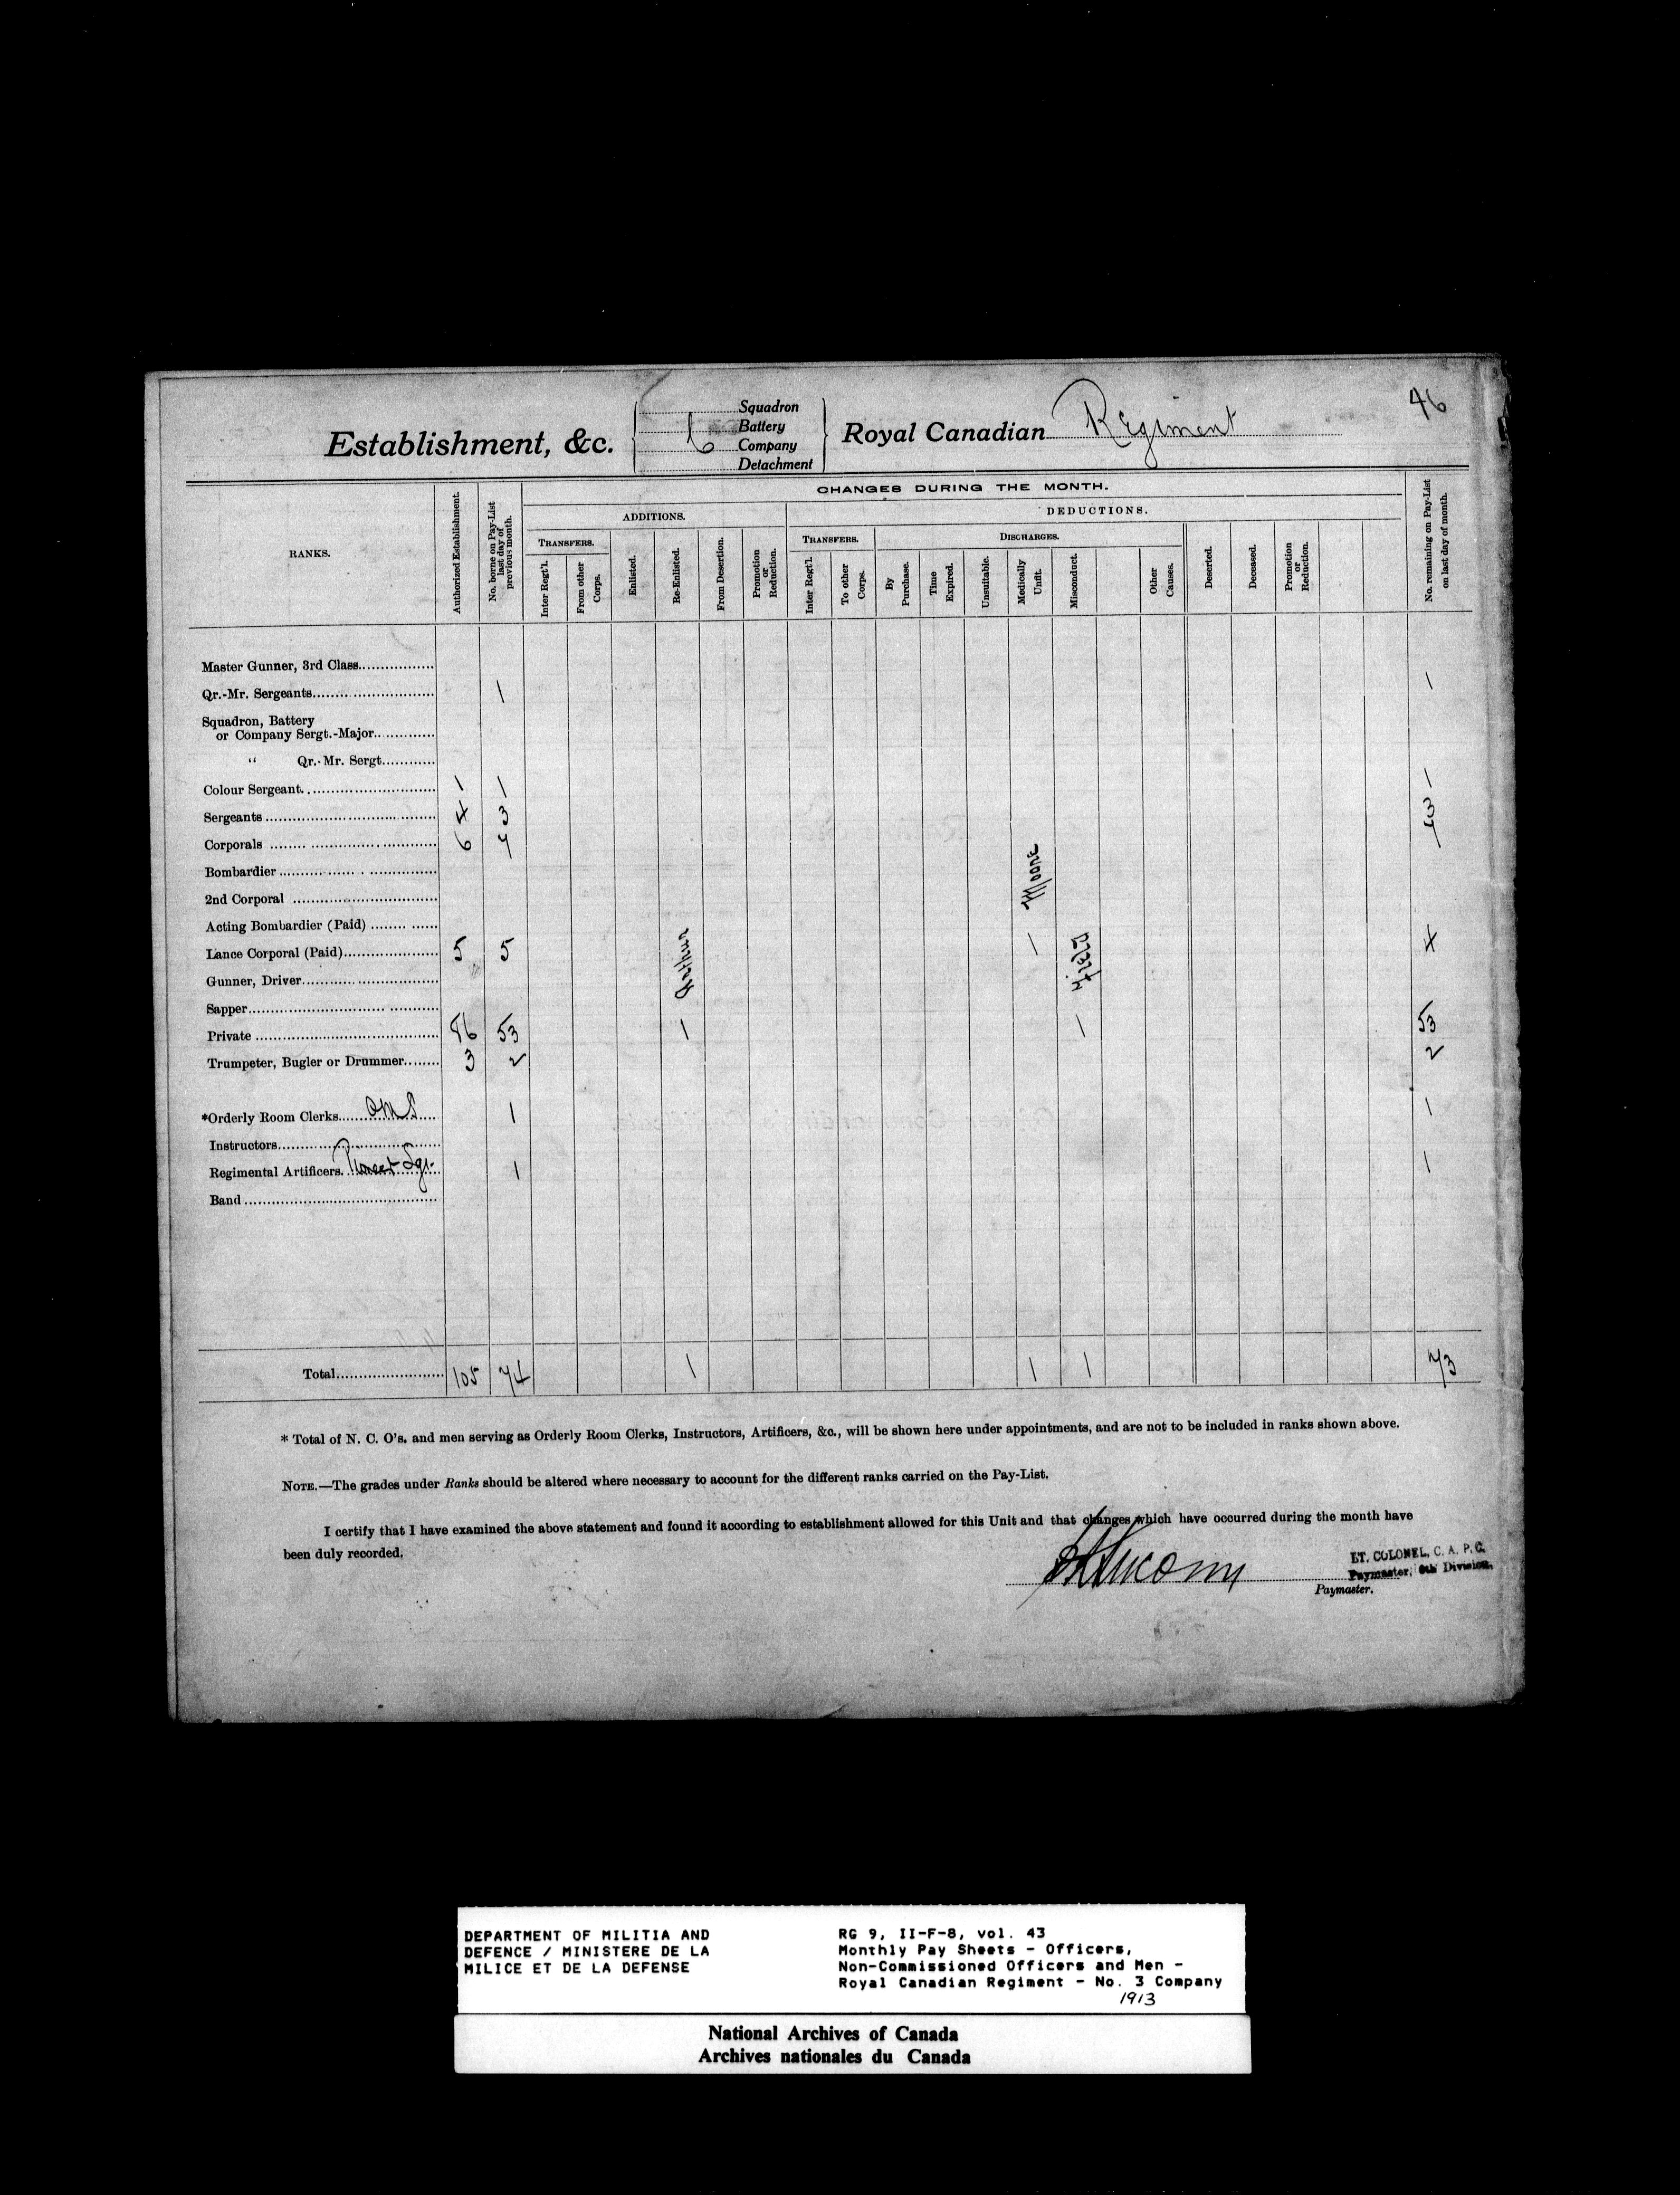 46
Establishment, &c.
Squadron
Battery
6 Company
Detachment
Royal Canadian Regiment
RANKS.
Authorized Establishment.
No. borne on Pay-List last day of previous month.
CHANGES DURING THE MONTH.
ADDITIONS.
DEDUCTIONS.
TRANSFERS.
Inter Regt'l.
From other Corps.
Enlisted.
Re-Enlisted.
From Desertion.
Promotion or Reduction.
TRANSFERS.
Inter Regt'l.
To other Corps.
DISCHARGES.
By Purchase.
Time Expired.
Unsuitable.
Medically Unfit.
Misconduct.
Other Causes.
Deserted.
Deceased.
Promotion or Reduction.
No. remaining on Pay-List on last day of month.
Master Gunner, 3rd Class
Qr.-Mr. Sergeants 1 1
Squadron, Battery
or Company Sergt.-Major
" Qr.-Mr. Sergt
Colour Sergeant 1 1 1
Sergeants 4 3 3
Corporals 6 7 7
Bombardier
2nd Corporal
Moore
Acting Bombardier (Paid)
Lance Corporal (Paid) 5 5 1 4
Arthur
Field
Gunner, Driver
Sapper
Private 86 53 1 1 53
Trumpeter, Bugler or Drummer 3 2 2
*Orderly Room Clerks QMS 1 1
Instructors
Regimental Artificers Pioneer Sgt. 1 1
Band
Total 105 74 1 1 1 73
* Total of N. C. O's. and men serving as Orderly Room Clerks, Instructors, Artificers, &c., will be shown here under appointments, and are not to be included in ranks shown above.
NOTE.—The grades under Ranks should be altered where necessary to account for the different ranks carried on the Pay-List.
I certify that I have examined the above statement and found it according to establishment allowed for this Unit and that changes which have occurred during the month have
been duly recorded.
LT. COLONEL, C. A. P. C.
Paymaster, 6th Division.
Paymaster.
DEPARTMENT OF MILITIA AND
DEFENCE / MINISTERE DE LA
MILICE ET DE LA DEFENSE
RG 9, II-F-8, vol. 43
Monthly Pay Sheets - Officers,
Non-Commissioned Officers and Men -
Royal Canadian Regiment - No. 3 Company
1913
National Archives of Canada
Archives nationales du Canada